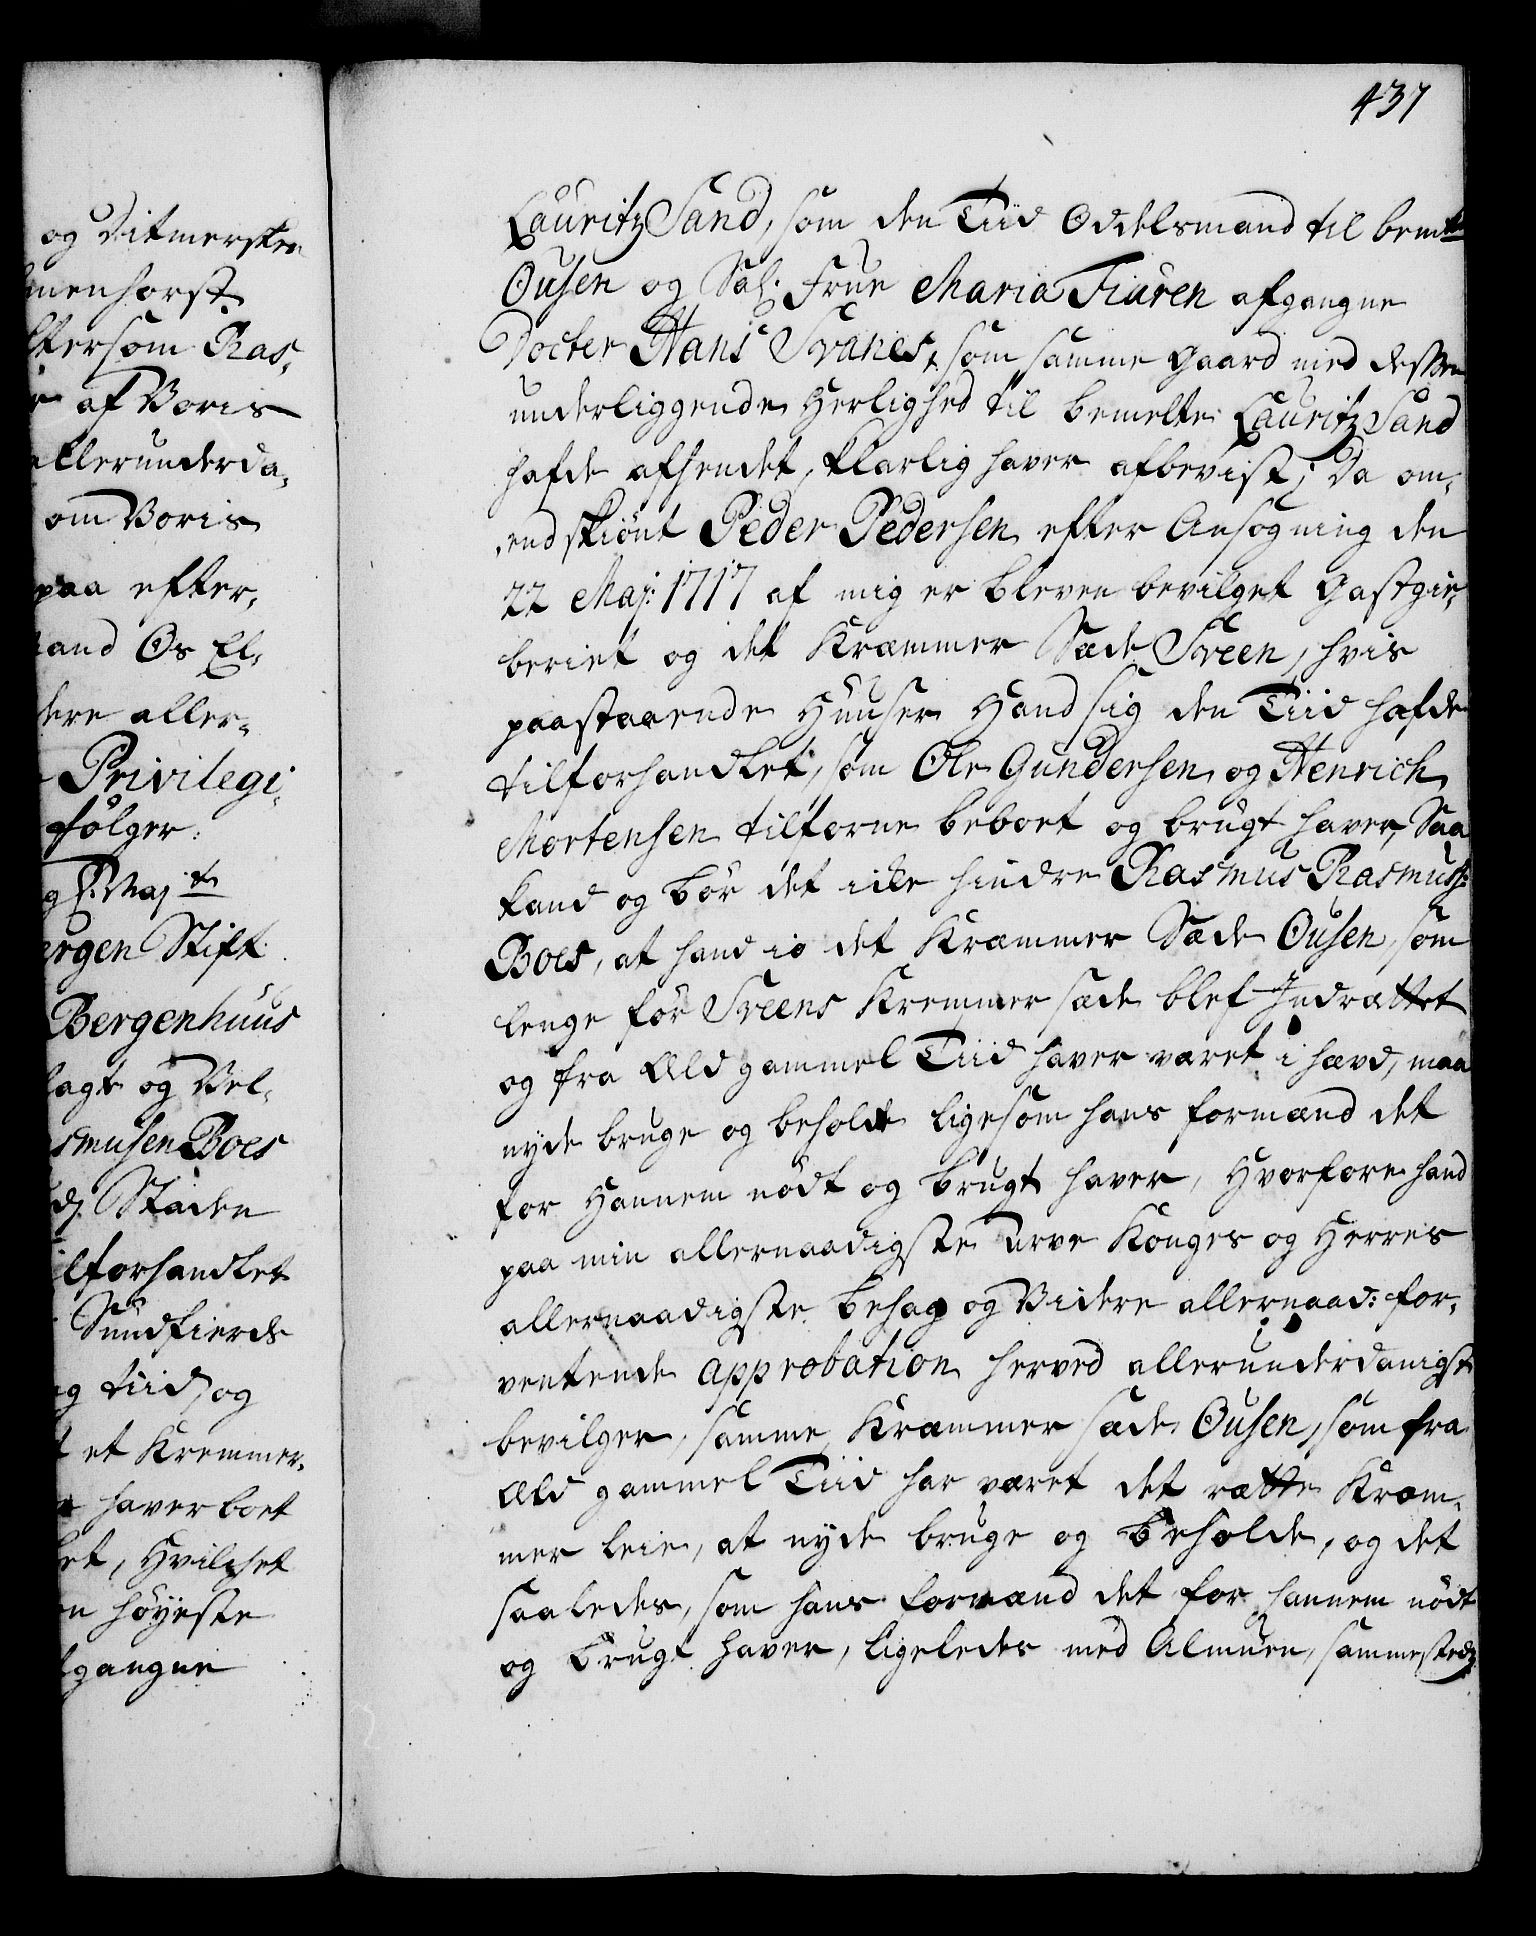 437
og Ditmersken
menhorst
ftersom Ras-
af Voris
allerunderda-
om Voris
paa efter-
tand Os El-
dere aller-
Privilegi-
følger:
g K: Maj.ts
ergen Stift
Bergenhuus
lagt og Vel-
smusen Boes
dz Staden
ilforhandlet
Sundfierds
g tiid, og
t et Kremmer-
haver boet
et, Hvilchet
en höyeste
fgangne
Lauritz Sand, som den Tiid Oddelsmand til bemte
Ousen og Sal: Frue Maria Fiuren afgangne
Docter Hans Svanes, som samme Gaard med dessen
underliggende Herlighed til bemelte Lauritz Sand
hafde afhendet, klarlig haver afbevist; Da om-
endskiönt Peder Pedersen efter Ansøgning den
22 Maj: 1717 af mig er bleven bevilget Gastgie-
beriet og det Kræmmer Sæde Sveen, hvis
paastaaende Huuser Hand sig den Tiid hafde
tilforhandlet, som Ole Gundersen og Henrich
Mortensen tilforne beboet og brugt haver, Saa
kand og bör det icke hindre Rasmus Rasmuss:
Boes, at hand io det Kræmmer Sæde Ousen, som
lenge för Sveens Kremmer sæde blef Indrættet
og fra Eld gammel Tiid haver været i hævd, maa
nyde bruge og beholde ligesom hans formænd det
for Hannem nödt og brugt haver, Hvorfore hand
paa min allernaadigste Arve Konges og Herres
allernaadigste behag og Videre allernaad: for-
ventende approbation herved allerunderdanigst
bevilges, samme Kræmmer sæde Ousen, som fra
Æld gammel Tiid har været det rætte Kræm-
mer leie, at nyde bruge og beholde, og det
saaledes, som hans formænd det for hannem nödt
og brugt haver, ligeledes med Almuen, sammestedz